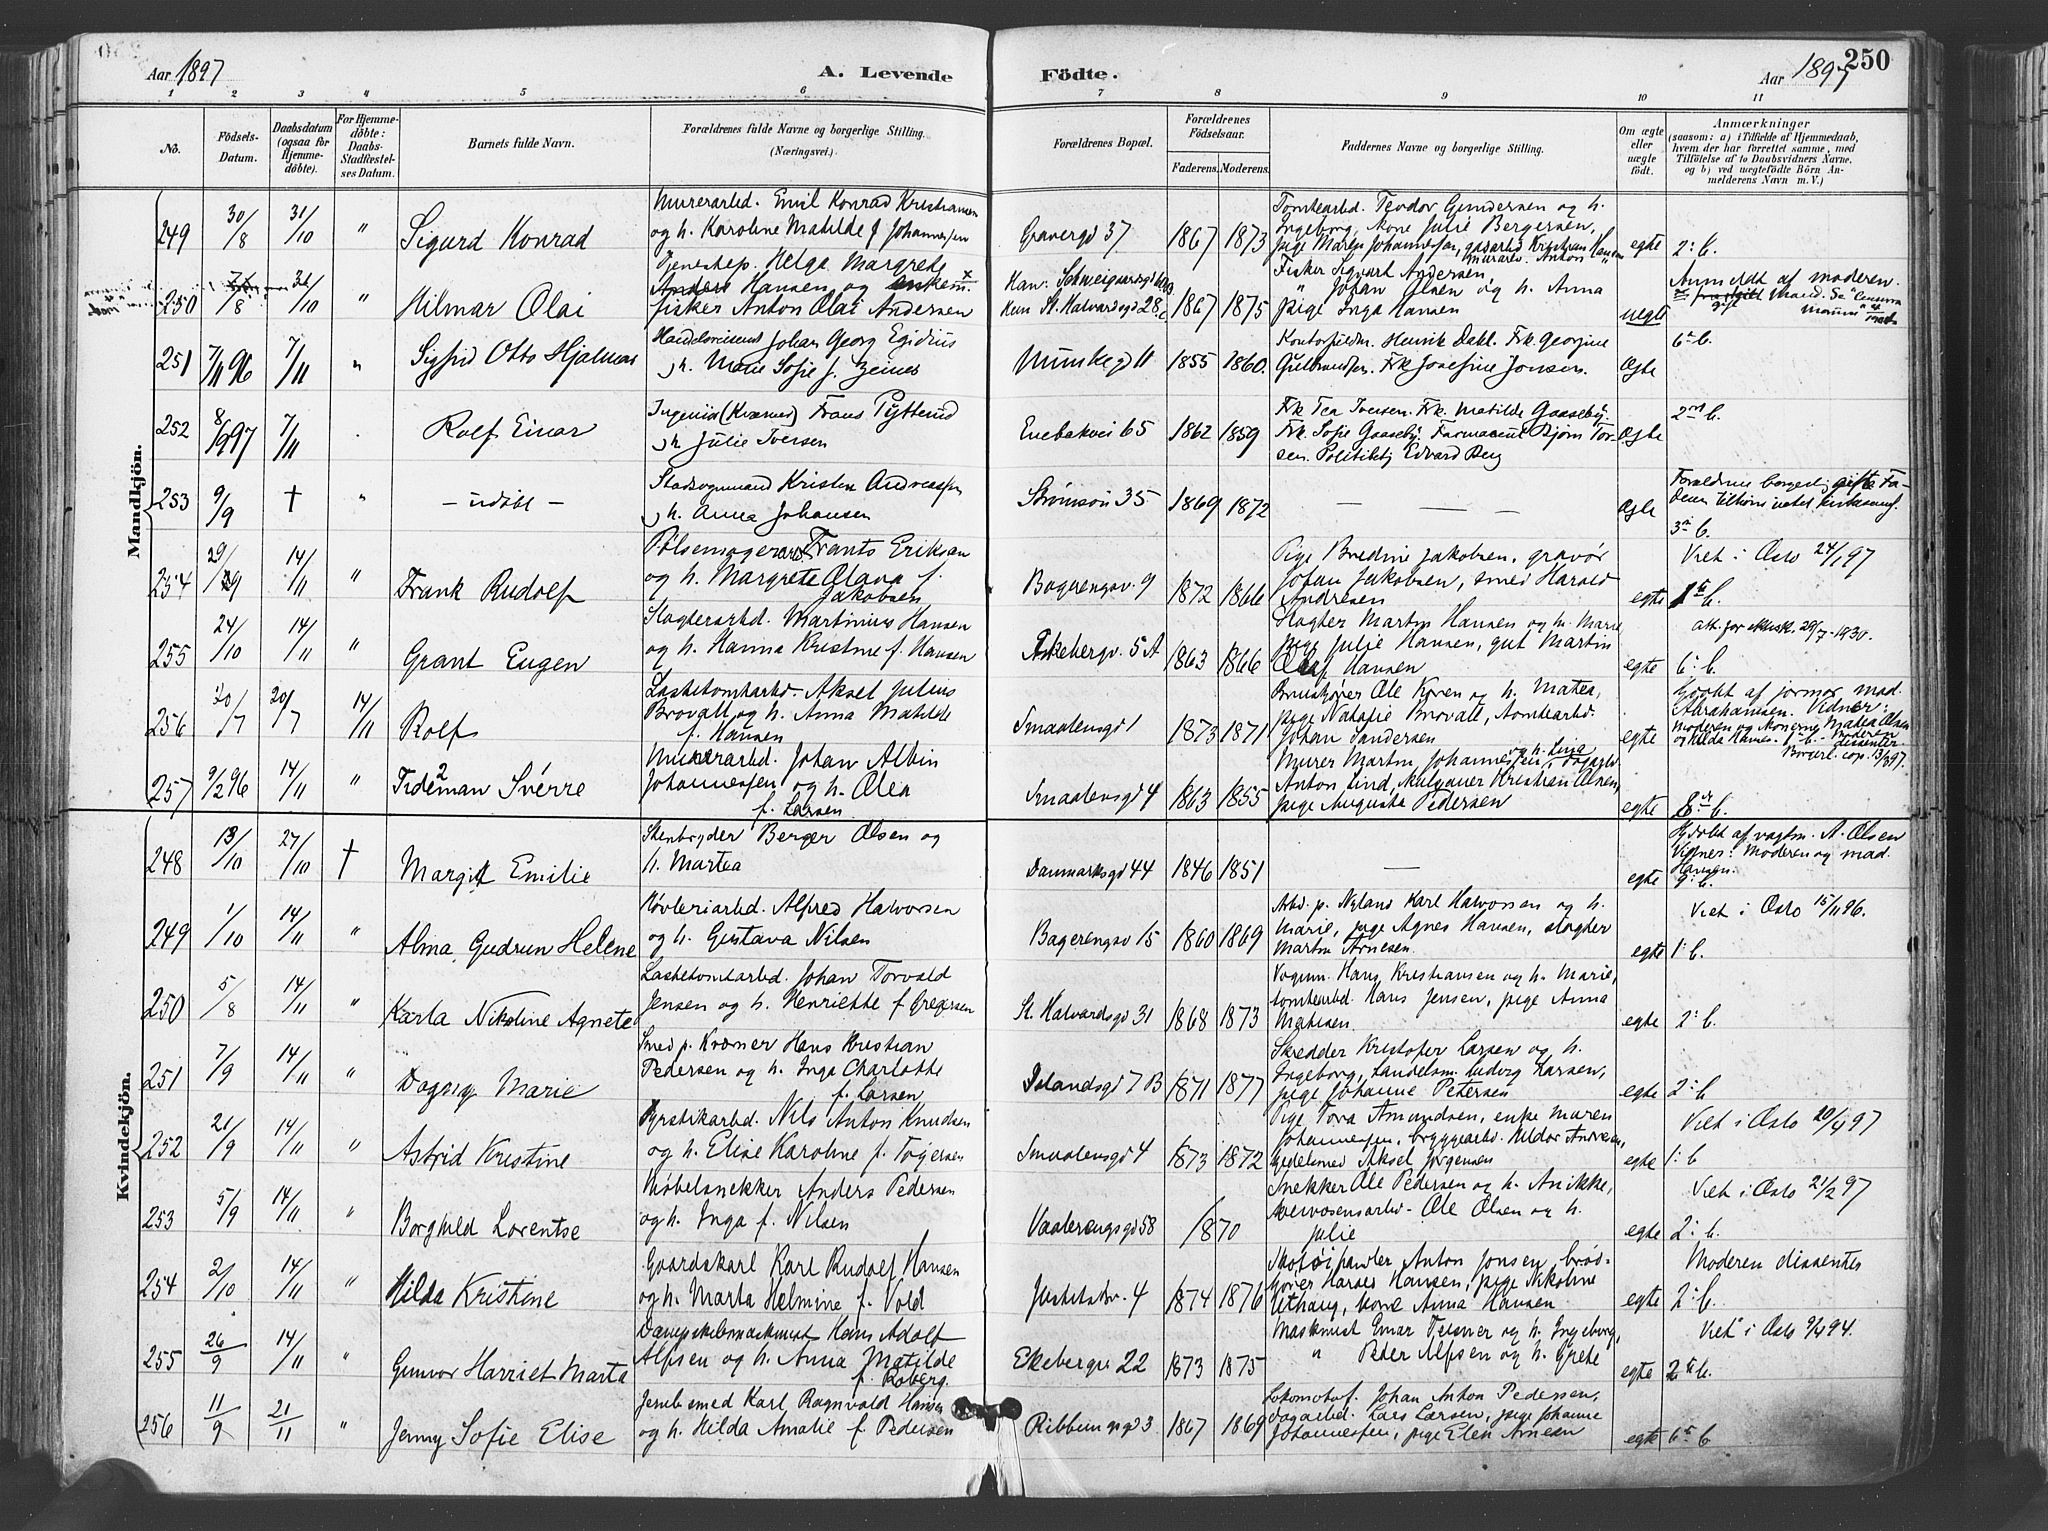 Aar 1897 A. Levende Födte. Aar 1897 250
1 2 3 4 5 6 7 8 9 10 11
No. Födsels-Datum. Daabsdatum (ogsaa for Hjemmedöbte). For Hjemmedöbte: Daabs-Stadfæstelses Datum. Barnets fulde Navn. Forældrenes fulde Navne og borgerlige Stilling. (Næringsvei.) Forældrenes Bopæl. Forældrenes Födselsaar. Faderens. Moderens. Faddernes Navne og borgerlige Stilling. Om ægte eller uægte födt. Anmærkninger (saasom: a) i Tilfælde af Hjemmedaab, hvem der har forrettet samme, med Tilföielse af to Daabsvidners Navne, og b) ved uægtefödte Börn Anmelderens Navn m. V.)
Mandkjön.
249 30/8 31/10 " Sigurd Konrad
Murerarbd. Emil Konrad Kristiansen
og h. Karoline Matilde f Johannessen
Gravergd 37 1867 1873
Tomtearbd. Teodor Gundersen og h.
Ingeborg, kone Julie Bergersen,
pige Maren Johannessen, gasarbd Kristian Hansen
egte 2: b.
250 /8 31/10 " Hilmar Olai
Tjenestep. Helga Margrete
Hansen og enkem.
fisker Anton Olai Andersen
Ham. Schweigaardsgd
Hun St. Halvardsgd 28c 1867 1875
Fisker Sigvart Andersen,
" Johan Olsen og h. Anna
Pige Inga Hansen
uegte Anmeldt af moderen.
251 7/11 96 7/11 " Sigfrid Otto Hjalmar
Handelsreisende Johan Georg Egidius
og h. Marie Sofie f. Zeiner
Munkegd 11 1855 1860.
Kontorfuldm. Henrik Dahl. Frk. Georgine
Gulbrandsen. Frk Josefine Jonsen.
Ægte 6te b.
252 8/9 97 7/11 Rolf Einar
Ingeniør (Kværner) Frans Pytterud
og h. Julie Iversen
Enebakvei 65 1862 1859
Frk Tea Iversen. Frk. Matilde Gaaseby.
Frk. Sofie Gaaseby. Farmaceut Bjørn Tor-
sen. Politibetj Edvard Berg
Ægte 2net b.
253 9/9 † " – udøbt –
Stadsvognmand Kristen Andreassen
og h. Anna Johansen
Strømsøi 35 1869 1872 – – –
Ægte Forældrene borgerlig gifte Fa-
deren tilhører intet kirkesamf.
3die b.
254 29/9 14/11 " Frank Rudolf
Pølsemagerarbd Frants Eriksen
og h. Margrete Olava f.
Jakobsen
Bagerengsv. 9 1872 1866
Pige Bredine Jakobsen, gravør
Johan Jakobsen, smed Harald
Andresen
egte Viet i Oslo 24/1 97
1te b.
255 24/10 14/11 " Grant Eugen
Slagterarbd. Martinius Hansen
og h. Hanna Kristine f. Hansen
Ekebergv. 5 A 1863 1866
Slagter Martin Hansen og h. Marie
pige Julie Hansen, gut Martin
Olaf Hansen
egte att. for 29/7-1930.
6: b.
256 20/7 20/7 14/11 Rolf
Lastetomtarbd. Aksel Julius
Brovall og h. Anna Matilde
f. Hansen
Smaalensgd 1 1873 1871
Brusekjører Ole Koren og h. Matea,
pige Natalie Brovall, tomtearbd.
Johan Sandersen
egte Hjdøbt af jormor mad.
Abrahamsen. Vidner:
Moderen og konerne Matea Olsen
og Hilda Hansen. Moderen
dissenter
257 9/2 96 14/11 " Tideman Sverre
Murerarbd. Johan Albin
Johannessen og h. Olea
f. Larsen
Smaalensgd 4 1863 1855
Murer Martin Johannessen og h. Lina, dagarbd
Anton Lind, Kristian Olsen,
pige Augusta Pedersen
egte 8: b.
Kvindekjön.
248 13/10 27/10 † Margit Emilie
Stenbryder Berger Olsen og
h. Martea
Danmarksgd 44 1846 1851 –
egte Hjdøbt af vagtm. A. Olsen
Vidner: Moderen og mad.
Hansen.
9: b.
249 1/10 14/11 " Alma Gudrun Helene
Høvleriarbd. Alfred Halvorsen
og h. Gustava Nilsen
Bagerengsv 15 1860 1869
Arbd. p. Nyland Karl Halvorsen og h.
Marie, pige Agnes Hansen, slagter
Martin Arnesen.
egte Viet i Oslo 15/11 96.
1: b.
250 5/8 14/11 " Karla Nikoline Agnete
Lastetomtarbd. Johan Torvald
Jensen og h. Henriette f Gregersen
St. Halvardsgd 31 1868 1873
Vognm. Hans Kristiansen og h. Marie,
tomtearbd. Hans Jensen, pige Anna
Matisen
egte 2: b.
251 7/9 14/11 " Dagny Marie
Smed p. Kværner Hans Kristian
Pedersen og h. Inga Charlotte
f. Larsen
Islandsgd 7 B 1871 1877
Skredder Kristofer Larsen og h.
Ingeborg, handelsm. Ludvig Larsen,
pige Johanne Petersen
egte 2: b
252 21/9 14/11 " Astrid Kristine
Fyrstikarbd. Nils Anton Knudsen
og h. Elise Karoline f. Tøgersen
Smaalensgd 4 1873 1872
Pige Tora Amundsen, enke Maren
Johannessen, bryggearbd. Hildor Andresen,
Aksel Jørgensen
egte Viet i Oslo 20/4 97
1: b
253 5/9 14/11 " Borghild Lorentse
Møbelsnekker Anders Pedersen
og h. Inga f. Nilsen
Vaalerengsgd 58 1870
Snekker Ole Pedersen og h. Anikke,
Ole Olsen og h.
Julie
egte Viet i Oslo 21/2 97
2: b.
254 2/10 14/11 " Hilda Kristine
Gaardskarl Karl Rudolf Hansen
og h. Marta Helmine f. Vold
4 1874 1876
Anton Jonsen, brød-
kjører Hansen, pige Nikoline
Uthaug, kone Anna Hansen
egte Moderen dissenter
2: b.
255 26/9 14/11 " Gunvor Harriet Marta
Dampskibsmaskinist Hans Adolf
Alfsen og h. Anna Matilde
f. Roberg.
Ekebergv 22 1873 1875
Maskinist Einar Teisner og h. Ingeborg,
" Peder Alfsen og h. Grete
egte Viet i Oslo 9/4 94.
2te b.
256 11/9 21/11 " Jenny Sofie Elise
Jernb. smed Karl Ragnvald Hansen
og h. Hilda Amalie f. Pedersen
Ribbungsgd 3 1867 1869
Lokomotivf. Johan Anton Pedersen,
dagarbd. Lars Larsen, pige Johanne
Johannessen, pige Elen Arnesen
egte 6te b